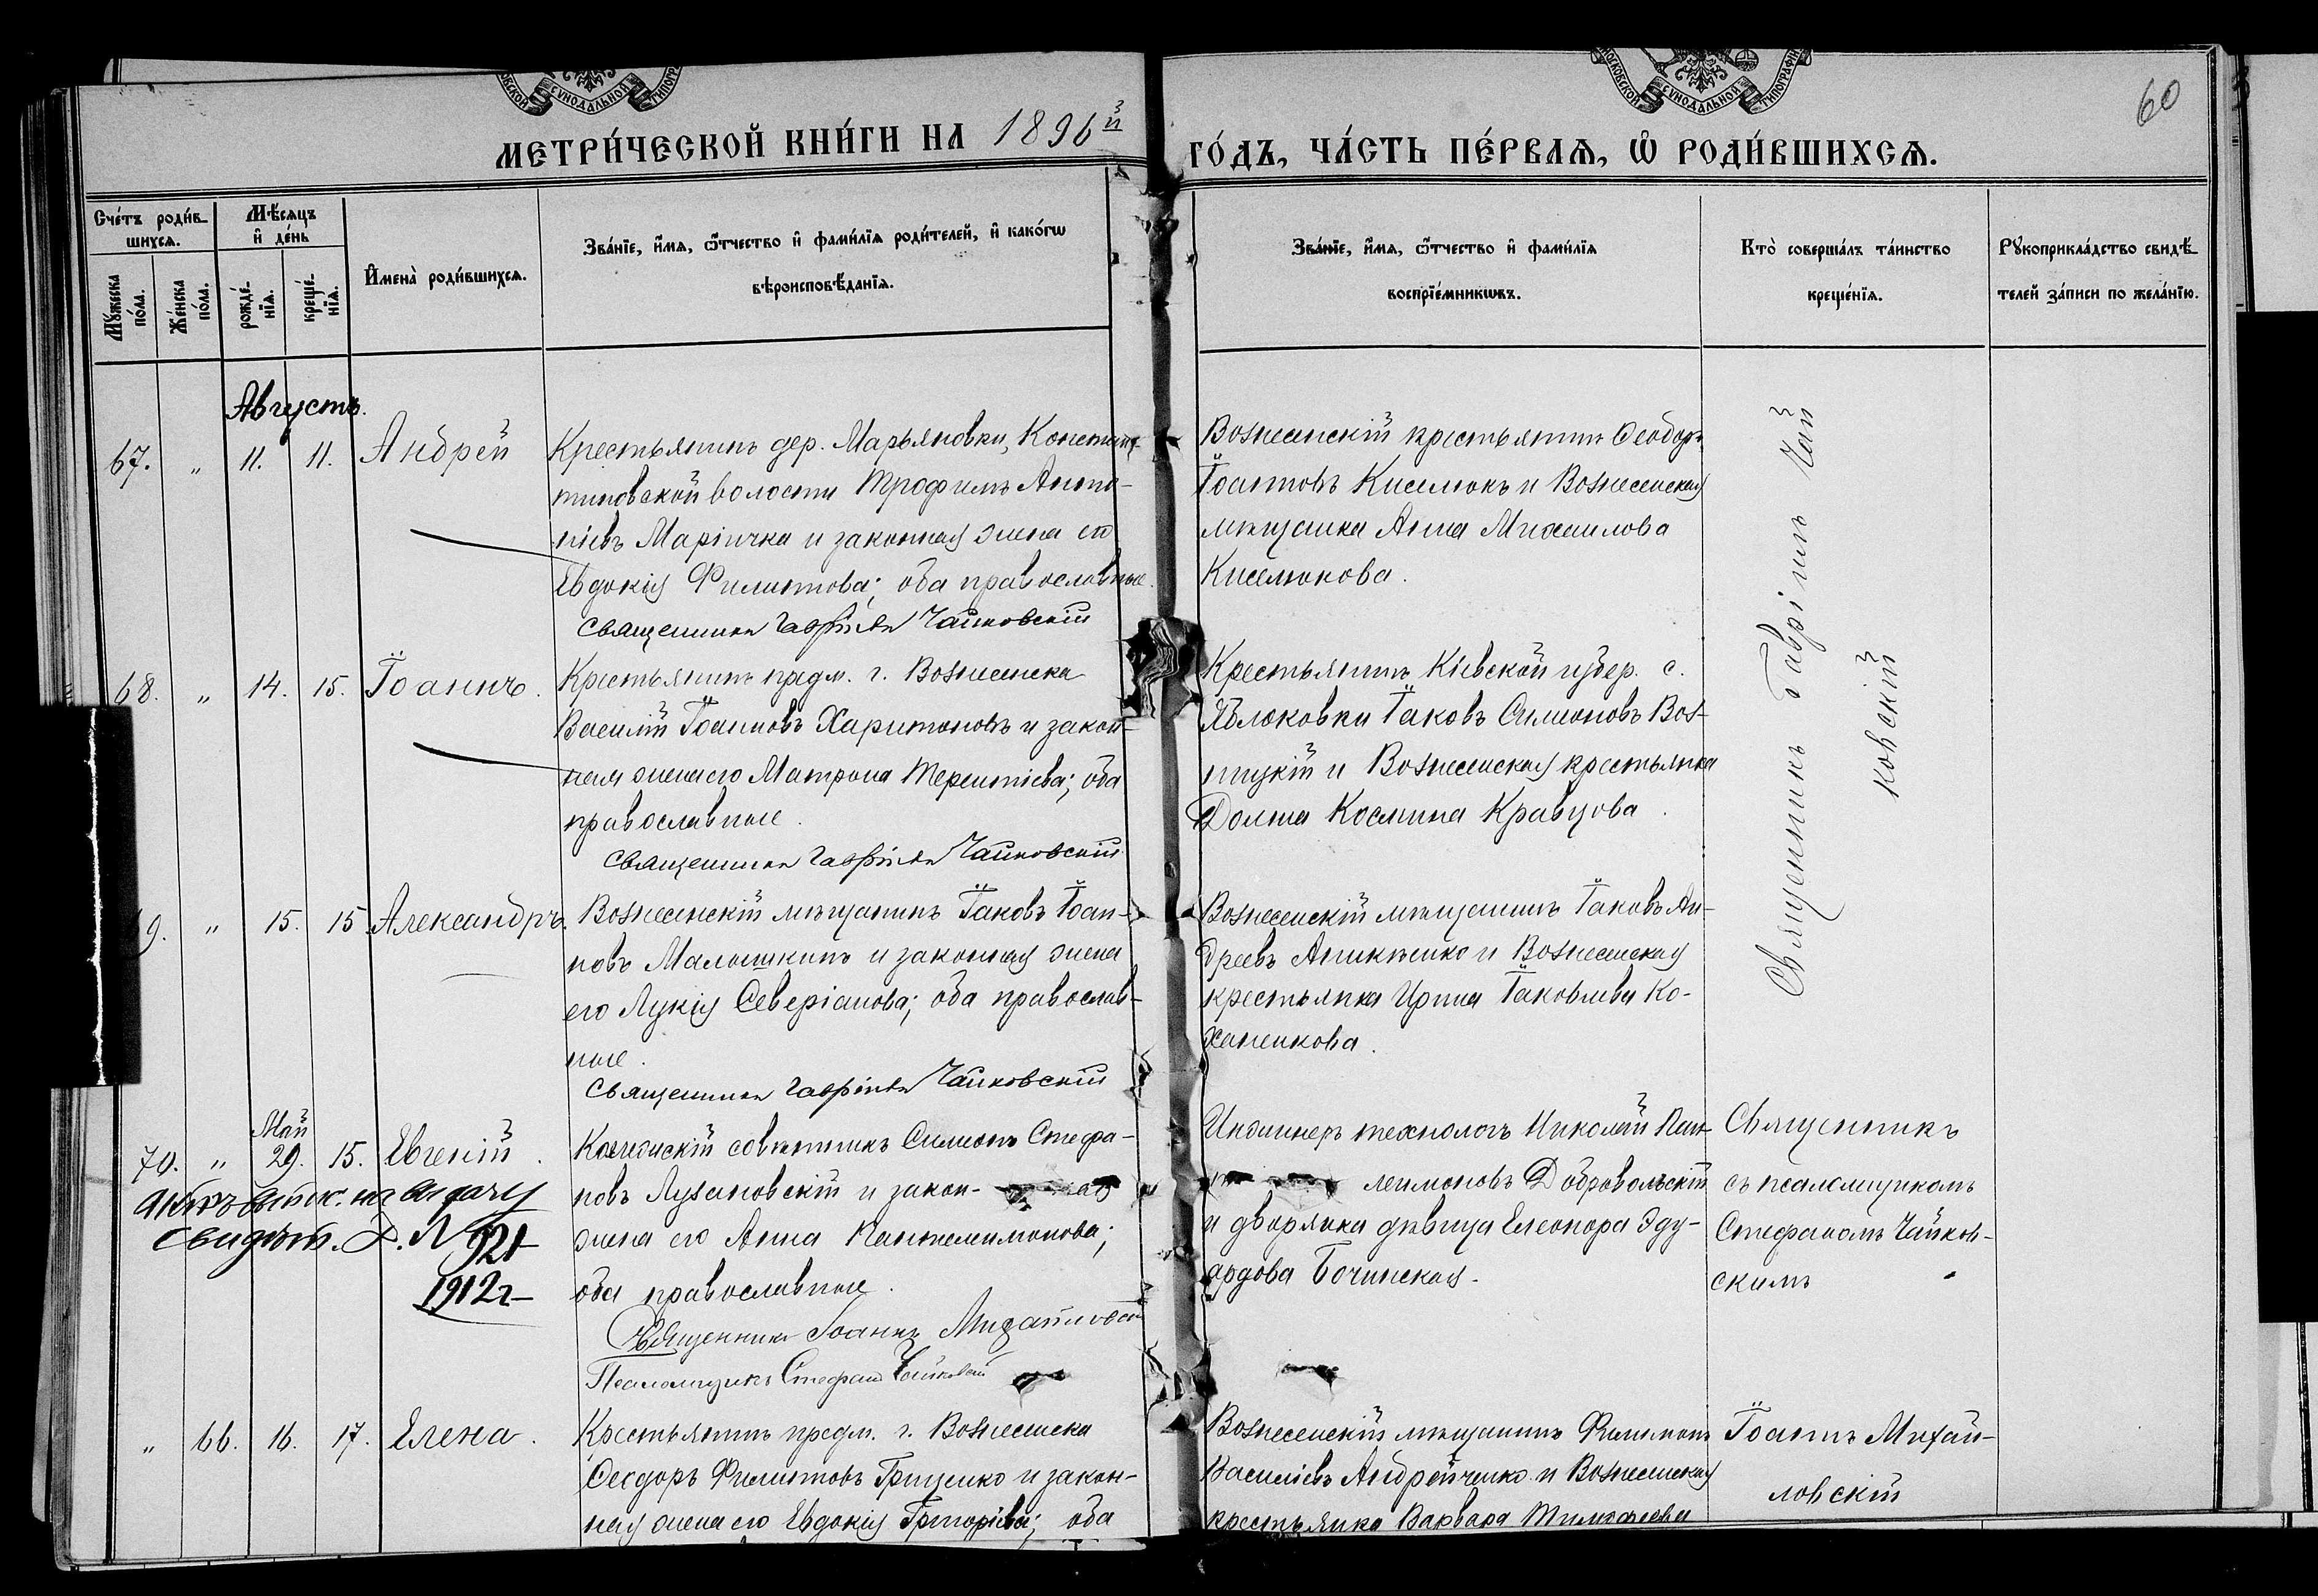 МОСКОВСКОЙ СУНОДАЛЬНОЙ ТИПОГРАФІ
МОСКОВСКОЙ СУНОДАЛЬНОЙ ТИПОГРАФІ
60
МЕТРИ́ЧЕСКОЙ КНИ́ГИ НА 1896й
ГО́ДЪ, ЧА́СТЬ ПЕ́РВАѦ, Ѽ РОДИ́ВШИХСѦ.
Сче́тъ роди́в-
шихсѧ.
Мѣ́сѧцъ
и҆ де́нь
Мꙋ́жеска
по́ла.
Же́нска
по́ла.
рожде́-
нїѧ.
креще́-
нїѧ.
И҆мена̀ роди́вшихсѧ.
Зва́нїе, и҆́мѧ, ѻ҆́тчество и҆ фами́лїѧ роди́телей, и҆ како́гѡ
вѣроисповѣ́данїѧ.
Зва́нїе, и҆́мѧ, ѻ҆́тчество и҆ фами́лїѧ
воспрїе́мникѡвъ.
Кто̀ соверша́лъ та́инство
креще́нїѧ.
Рꙋкоприкла́дство свидѣ́-
телей за́писи по жела́нїю.
Августъ.
67. „ 11. 11. Андрей
Крестьянинъ дер. Марьяновки, Констан-
тиновской волости Трофимъ Анто-
ніевъ Маріичка и законная жена его
Евдокія Филиппова; оба православные.
Священникъ Гавріилъ Чайковскій
Вознесенскій крестьянинъ Ѳеодоръ
Іоанновъ Киселюкъ и Вознесенская
мѣщанка Анна Михаилова
Киселюкова.
Священникъ Гавріилъ Чай
ковскій
68. „ 14. 15. Іоаннъ.
Крестьянинъ предм. г. Вознесенска
Василій Іоанновъ Харитоновъ и закон-
ная жена его Матрона Терентіева; оба
православные.
Священникъ Гавріилъ Чайковскій
Крестьянинъ Кіевской губер. с.
Яблоковки Іаковъ Симеоновъ Воз-
ницкій и Вознесенская крестьянка
Домна Космина Кравцова.
9. „ 15. 15 Александръ.
Вознесенскій мѣщанинъ Іаковъ Іоан-
новъ Малошкинъ и законная жена
его Лукія Северіанова; оба православ-
ные.
Священникъ Гавріилъ Чайковскій
Вознесенскій мѣщанинъ Іаковъ Ан-
дреевъ Аникѣенко и Вознесенская
крестьянка Ирина Іаковлева Ко-
ханенкова.
Май
70. „ 29. 15. Евгеній.
выдачу
свидѣт. Д. N 921
1912г
совѣтникъ Симеонъ Стефа-
новъ Лузановскій и закон-
жена его Анна Пантелеимонова;
оба православные.
Священникъ Іоаннъ Михайловскій
Псаломщикъ Стефанъ Чайковскій
Инженеръ технологъ Николай Пан-
леимоновъ Добровольскій
и дворянка дѣвица Елеонора Эду-
ардова Бочинская.
Священникъ
съ псаломщикомъ
Стефаномъ Чайков-
скимъ
„ 66. 16. 17. Елена.
Крестьянинъ предм. г. Вознесенска
Ѳеодоръ Филипповъ Гриценко и закон-
ная жена его Евдокія Григоріева; оба
Вознесенскій мѣщанинъ Филимонъ
Василіевъ Андрейченко и Вознесенская
крестьянка Варвара Тимофеева
Іоаннъ Михай-
ловскій